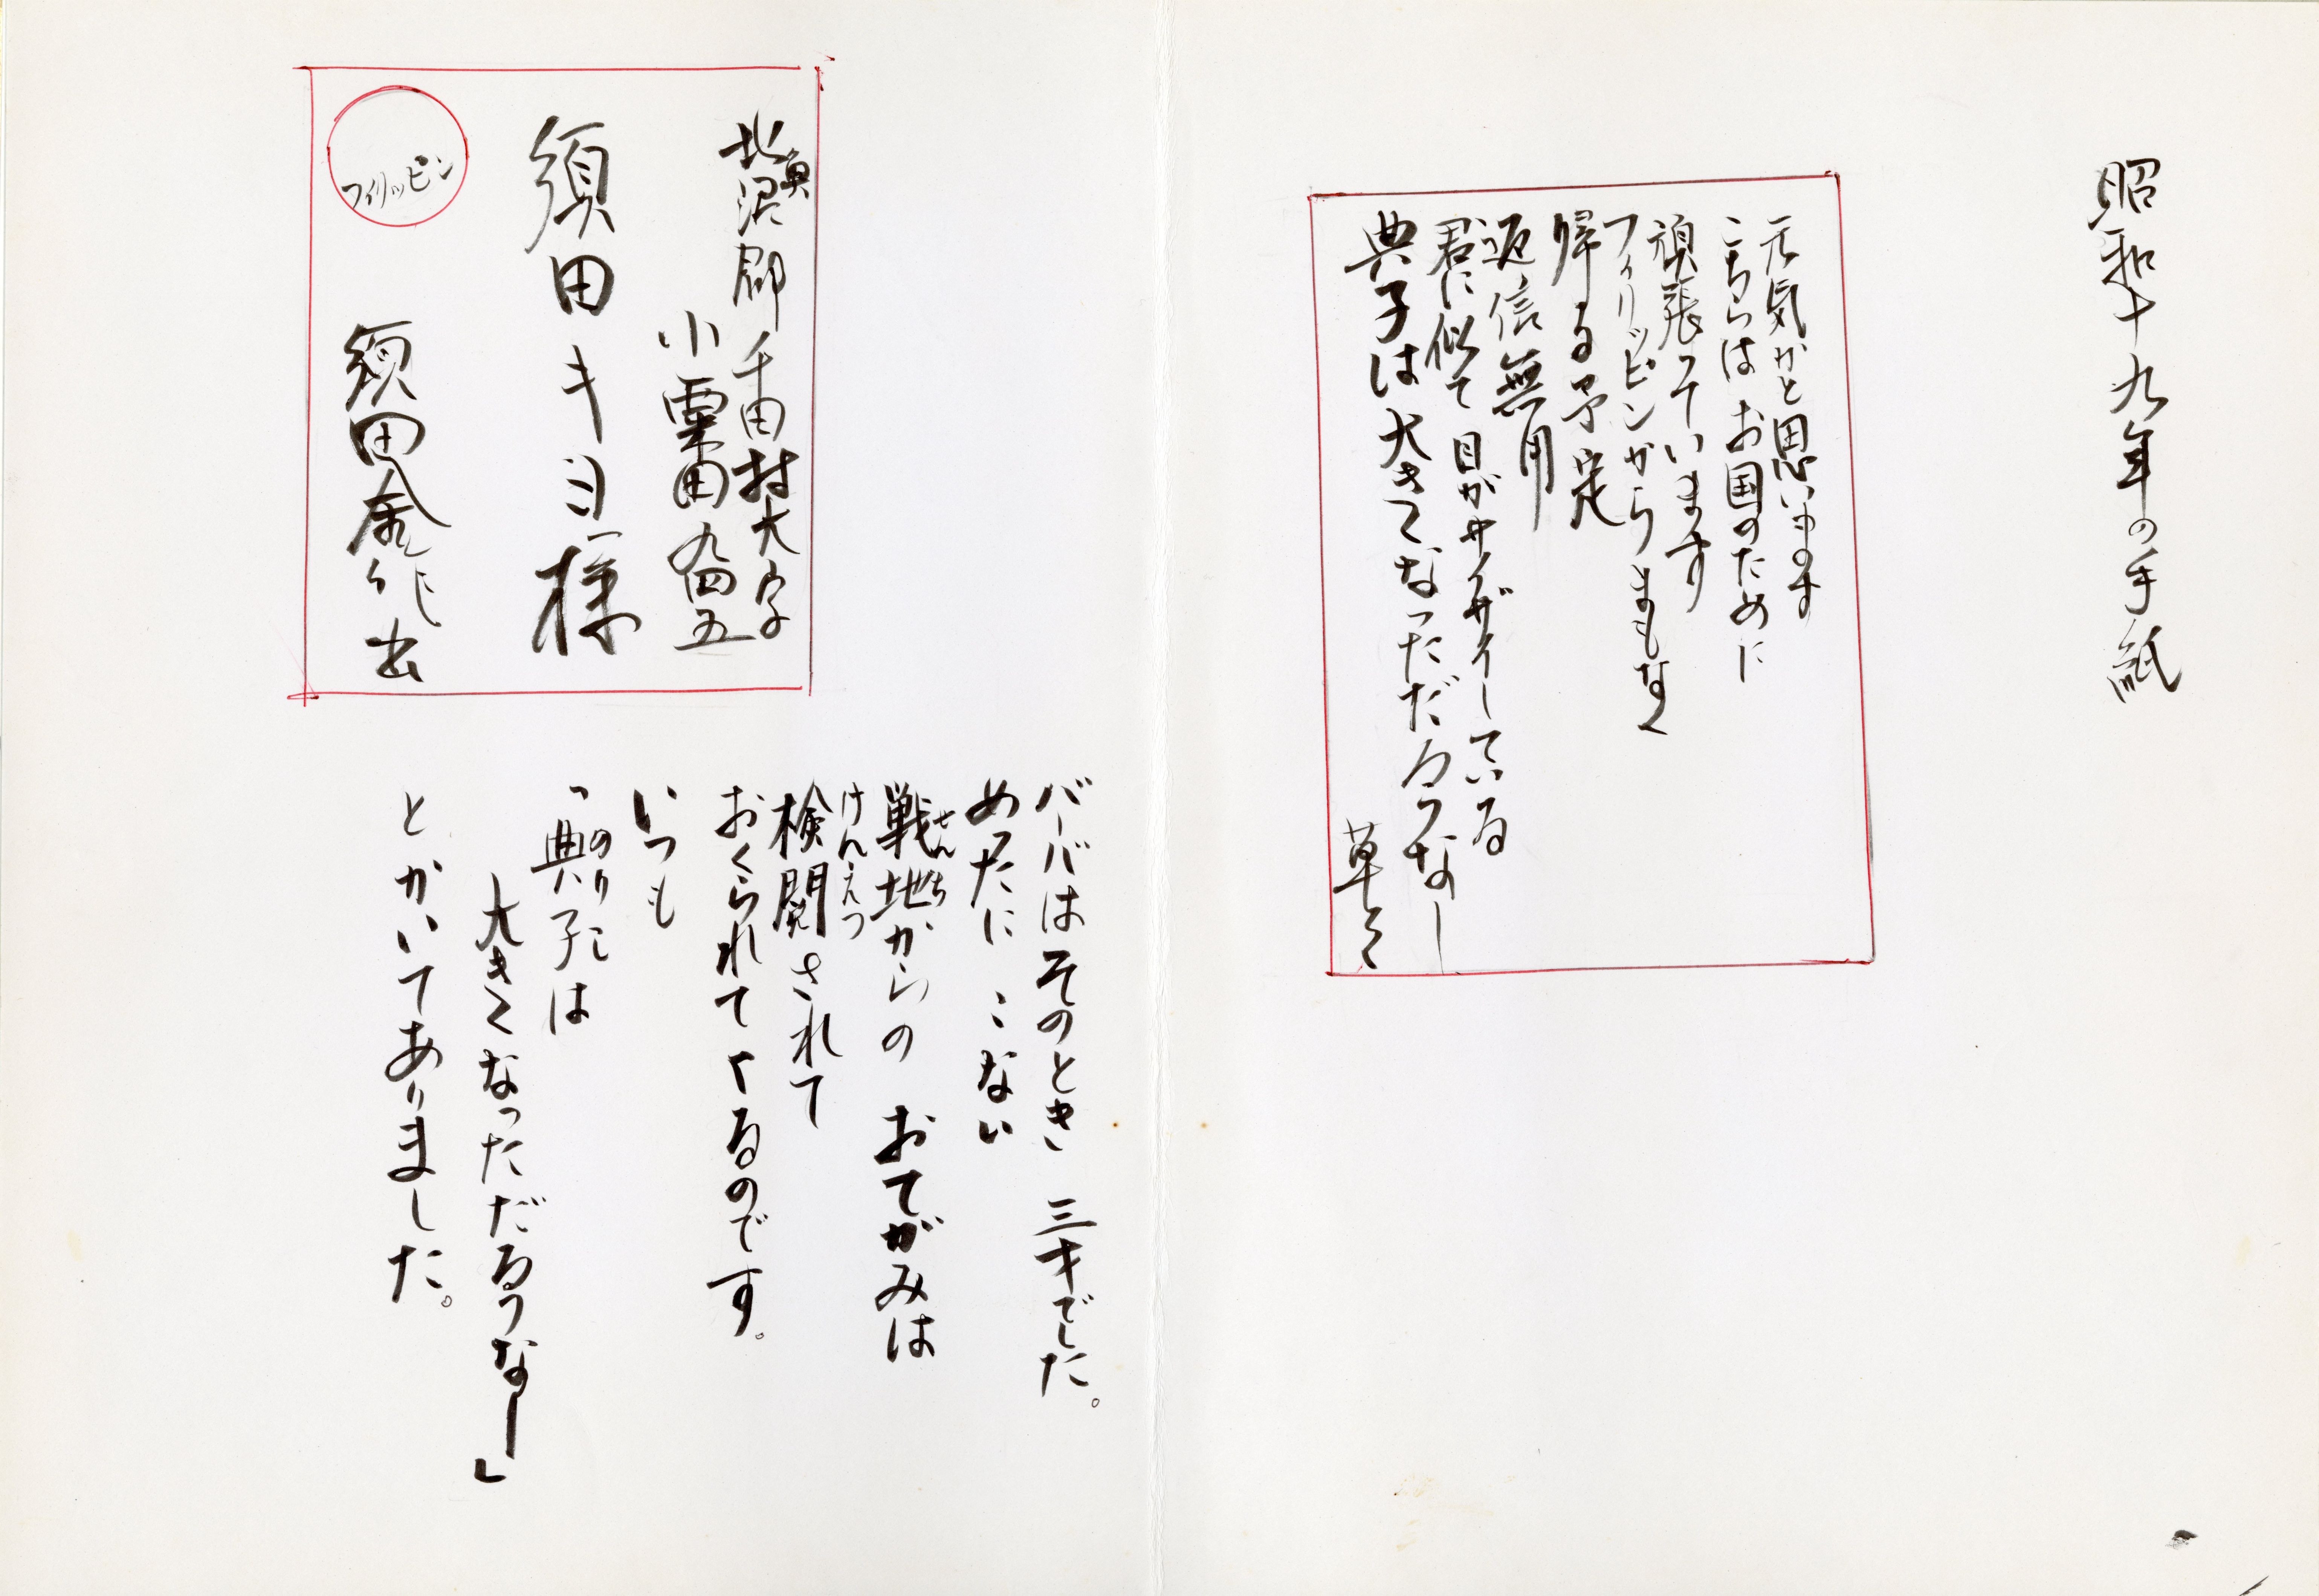 昭和十九年の手紙
元気かと思います
こちらは お国のために
頑張っています
フィリッピンから まもなく
帰る予定
返信無用
君に似て 目がサイザイしている
典子は大きくなっただろうなー
草々
北魚沼郡 千田村大字
小粟田九四五
須田キヨ様
フィリッピン
須田金作出
バーバはそのとき 三才でした。
めったに こない
戦地からの おてがみは
せんち
検閲されて
けんえつ
おくられてくるのです。
いつも
「典子は
のりこ
大きくなっただろうなー」
とかいてありました。